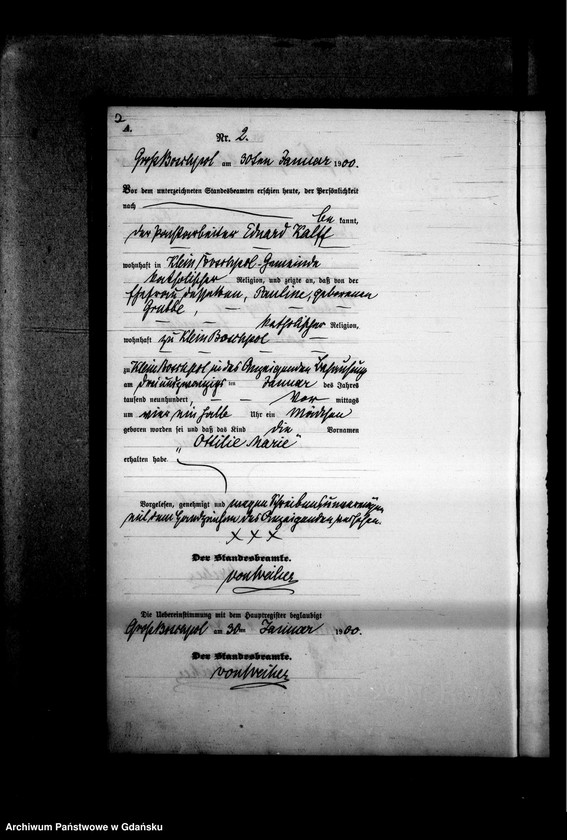 2
A.
Nr. 2.
Groß Boschpol am 30ten Januar 1900.
Vor dem unterzeichneten Standesbeamten erschien heute, der Persönlichkeit
nach be kannt,
der Eduard Kalff
wohnhaft in Klein Boschpol-Gemeinde
katholischer Religion, und zeigte an, daß von der
Ehefrau desselben, Pauline, geborenen
Grubbe,
katholischer Religion,
wohnhaft zu Klein Boschpol
zu Klein Boschpol in des Anzeigenden Behausung
am dreiundzwanzigs ten Januar des Jahres
tausend neunhundert, Vor mittags
um vier ein halb Uhr ein Mädchen
geboren worden sei und daß das Kind die Vornamen
"Ottilie Marie"
erhalten habe.
Vorgelesen, genehmigt und wegen Schreibensunvermögen
mit dem Handzeichen des Anzeigenden versehen.
× × ×
Der Standesbeamte.
von Weiher
Die Uebereinstimmung mit dem Hauptregister beglaubigt
Groß Boschpol am 30ten Januar 1900.
Der Standesbeamte.
von Weiher
Archiwum Państwowe w Gdańsku